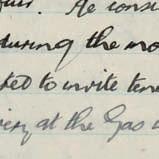 He consi
during the mo
ted to invite ten
at the Gas